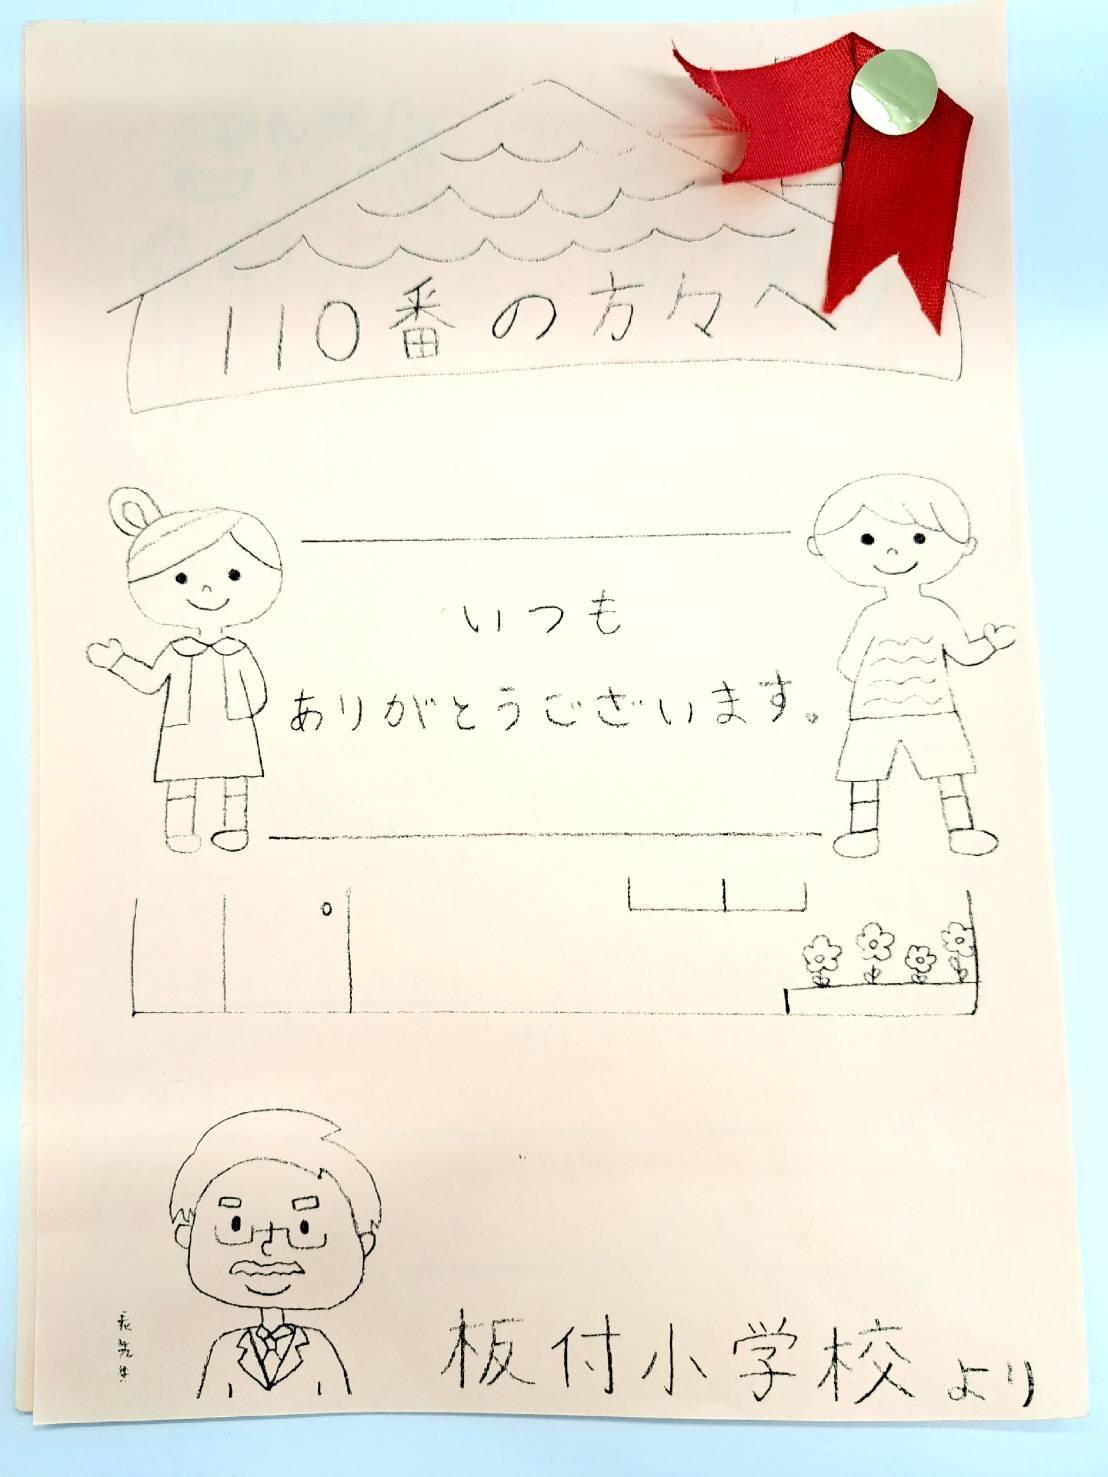 110番の方々へ
いつも
ありがとうございます。
板付小学校より